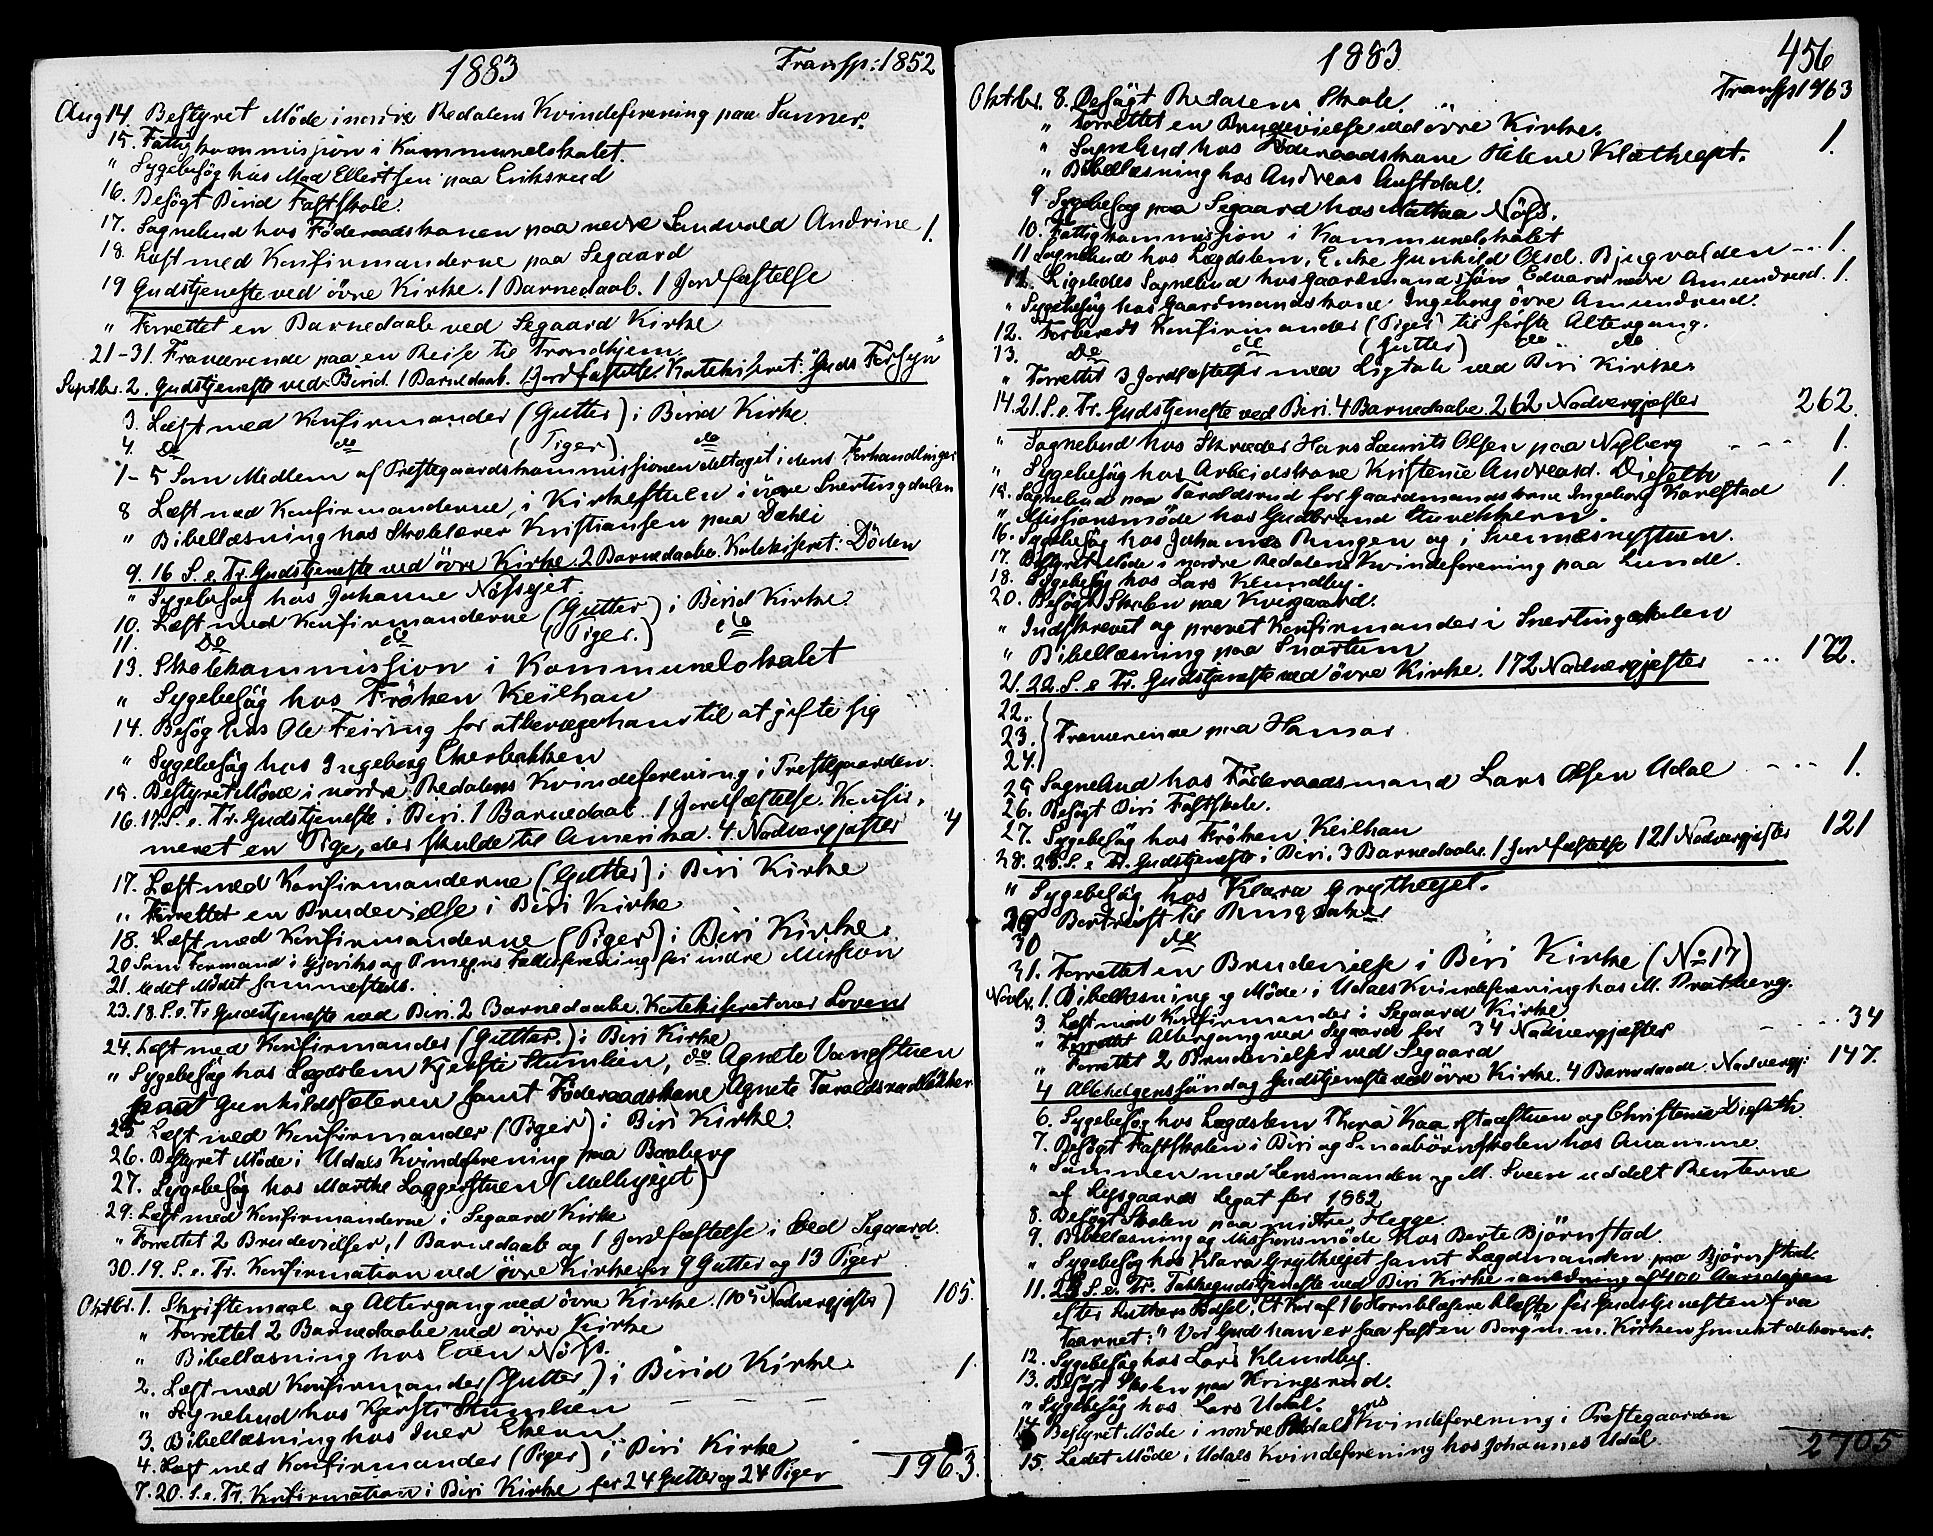 1883
Transp: 1852
Aug 14. Bestyret Möde i nordre Redalens Kvindeforening paa Sanner.
15. Fattigkommission i Kommunelokalet.
" Sygebesög hos Mad Ellertsen paa Eriksrud
16. Besögt Birid Fastskole.
17. Sognebud hos Föderaadskonen paa nedre Sandvold Andrine 1.
18. Læst med Konfirmanderne paa Segaard
19 Gudstjeneste ved övre Kirke. 1 Barnedaab. 1 Jordfæstelse
" Forrettet en Barnedaab ved Segaard Kirke
21-31. Fraværende paa en Reise til Trondhjem.
Septbr. 2. Gudstjeneste ved Birid. 1 Barnedaab. 1 Jordfæstelse. Katekiseret: "Guds Forsyn"
3. Læst med Konfirmander (Gutter) i Birid Kirke.
4. Do do (Piger) do
1-5 Som Medlem af Prestegaardskommissionen deltaget i dens Forhandlinger
8 Læst med Konfirmanderne i Kirkestuen i övre Snertingdalen
" Bibellæsning hos Skolelærer Kristiansen paa Dæhli
9. 16 S. e. Tr. Gudstjeneste ved övre Kirke. 2 Barnedaabe. Katekiseret: Döden
" Sygebesög hos Johanne Nössejet
10. Læst med Konfirmanderne (Gutter) i Birid Kirke.
11. Do do (Piger.) do
13. Skolekommission i Kommunelokalet
" Sygebesög hos Fröken Keilhau
14. Besög hos Ole Feiring for at bevæge ham til at gifte sig
" Sygebesög hos Ingeborg Ekerbakken
15. Bestyret Möde i nordre Redalens Kvindeforening i Prestegaarden.
16. 17. S. e. Tr. Gudstjeneste i Biri. 1 Barnedaab. 1 Jordfæstelse. Konfir-
meret en Pige, der skulde til Amerika. 4. Nadvergjæster 4
17. Læst med Konfirmanderne (Gutter) i Biri Kirke
" Forrettet en Brudevielse i Biri Kirke
18. Læst med Konfirmanderne (Piger) i Biri Kirke.
20 Som Formand i Gjöviks og Omegns Fællesforening for indre Mission
21. ledet Mödet sammesteds.
23. 18. S. e. Tr Gudstjeneste ved Biri. 2 Barnedaabe. Katekiseret over Loven
24. Læst med Konfirmander (Gutter.) i Biri Kirke
" Sygebesög hos Lægdslem Kjersti Stumlien, do Agnete Vangstuen
paa Gunhildsæteren samt Föderaadskone Agnete Taraldsrud
25 Læst med Konfirmander (Piger) i Biri Kirke.
26. Bestyret Möde i Udals Kvindeforening paa Braaberg
27. Sygebesög hos Marthe Laggerstuen (Mellejejet)
29. Læst med Konfirmanderne i Segaard Kirke
" Forrettet 2 Brudevielser, 1 Barnedaab og 1 Jordfæstelse i ved Segaard.
30. 19. S. e. Tr. Konfirmation ved övre Kirke for 9 Gutter og 13 Piger
Oktbr. 1. Skriftemaal og Altergang ved övre Kirke. (105 Nadvergjæster) 105.
" Forrettet 2 Barnedaabe ved övre Kirke
" Bibellæsning hos Even Nöss.
2. Læst med Konfirmander (Gutter) i Birid Kirke.
" Sognebud hos Kjersti Stumlien - - - 1.
3. Bibellæsning hos Iver Ekern
4. Læst med Konfirmander (Piger) i Biri Kirke
7. 20. S. e. Tr. Konfirmation i Biri Kirke for 24 Gutter og 24 Piger
1963.
1883
456
Transp 1963
Oktbr. 8. Besögt Redalens Skole.
" Forrettet en Brudevielse ved övre Kirke.
" Sognebud hos Föderaadskone Helene Klæthejet. 1.
" Bibellæsning hos Andreas Austdal.
9 Sygebesög paa Segaard hos Mathea Nöss.
10. Fattigkommission i Kommunelokalet
11 Sognebud hos Lægdslem, Enke Gunhild Olsd. Bjugvolden - .. 1.
11. Ligeledes Sognebud hos Gaardmandssön Edvard nedre Amundrud. 1.
" Sygebesög hos Gaardmandskone Ingeborg övre Amundrud.
12. Forberedt Konfirmander (Piger) til förste Altergang.
13. Do do (Gutter) do do
" Forrettet 3 Jordfæstelser med Ligtale ved Biri Kirke
14. 21. S. e. Tr. Gudstjeneste ved Biri. 4 Barnedaabe. 262 Nadvergjæster 262.
" Sognebud hos Skræder Hans Laurits Olsen paa Nyberg - - - 1.
" Sygebesög hos Arbeidskone Kristense Andreasd. Dieseth 1.
15. Sognebud paa Taraldsrud for Gaardmandskone Ingeborg Karlstad
" Missionsmöde hos Gudbrand Stuvekkern.
16. Sygebesög hos Johannes Rungen og i Sveinæsnystuen.
17. Bestyret Möde i nordre Redalens Kvindeforening paa Lunde.
18. Sygebesög hos Lars Klundby.
20. Besögt Skolen paa Kvigaard.
" Indskrevet og prövet Konfirmander i Snertingdalen
" Bibellæsning paa Snartum
21. 22. S. e Tr. Gudstjeneste ved övre Kirke. 172 Nadvergjæster - .. 172.
22.
23. Fraværende paa Hamar
24.
25 Sognebud hos Föderaadsmand Lars Olsen Udal - - .. 1.
26. Besögt Biri Fastskole.
27. Sygebesög hos Fröken Keilhau
28. 23. S. e Tr. Gudstjeneste i Biri. 3 Barnedaabe. 1 Jordfæstelse 121 Nadvergjæster 121
" Sygebesög hos Klara Grythejet.
29 Bortreist til Ringsaker
30 do
31. Forrettet en Brudevielse i Biri Kirke (No 17)
Novbr. 1. Bibellæsning og Möde i Udals Kvindeforening hos M. Bratberg.
3. Læst med Konfirmander i Segaard Kirke
" Forrettet Altergang ved Segaard for 34 Nadvergjæster - .. 34
" Forrettet 2 Brudevielser ved Segaard
4 Allehelgenssöndag Gudstjeneste ved övre Kirke. 4 Barnedaabe. Nadvergj: 147.
6. Sygebesög hos Lægdslem Thora Kaastadstuen og Christense Dieseth
7. Besögt Fastskolen i Biri og Smaabörnskolen hos Anamme
" Sammen med Lensmanden og M. Sveen uddelt Renterne
af Segaards Legat for 1882
8. Besögt Skolen paa midtre Hegge.
9. Bibellæsning og Missionsmöde hos Berte Björnstad.
" Sygebesög hos Klara Grythejet samt Lægdmanden paa Björnstad.
11. 25 S. e. Tr. Takkegudstjeneste ved Biri Kirke i anledning af 400 Aarsdagen
efter Luthers Födsel. Et Kor af 16 Hornblæsere blæste för Gudstjenesten fra
Taarnet: "Vor Gud han er saa fast en Borg m. m. Kirken smukt dekoreret.
12. Sygebesög hos Lars Klundby.
13. Besögt Skolen paa Kringsrud.
" Sygebesög hos Lars Udal.
14 Bestyret Möde i nordre Redalens Kvindeforening i Prestegaarden
15. Ledet Möde i Udals Kvindeforening hos Johannes Udal.
2705